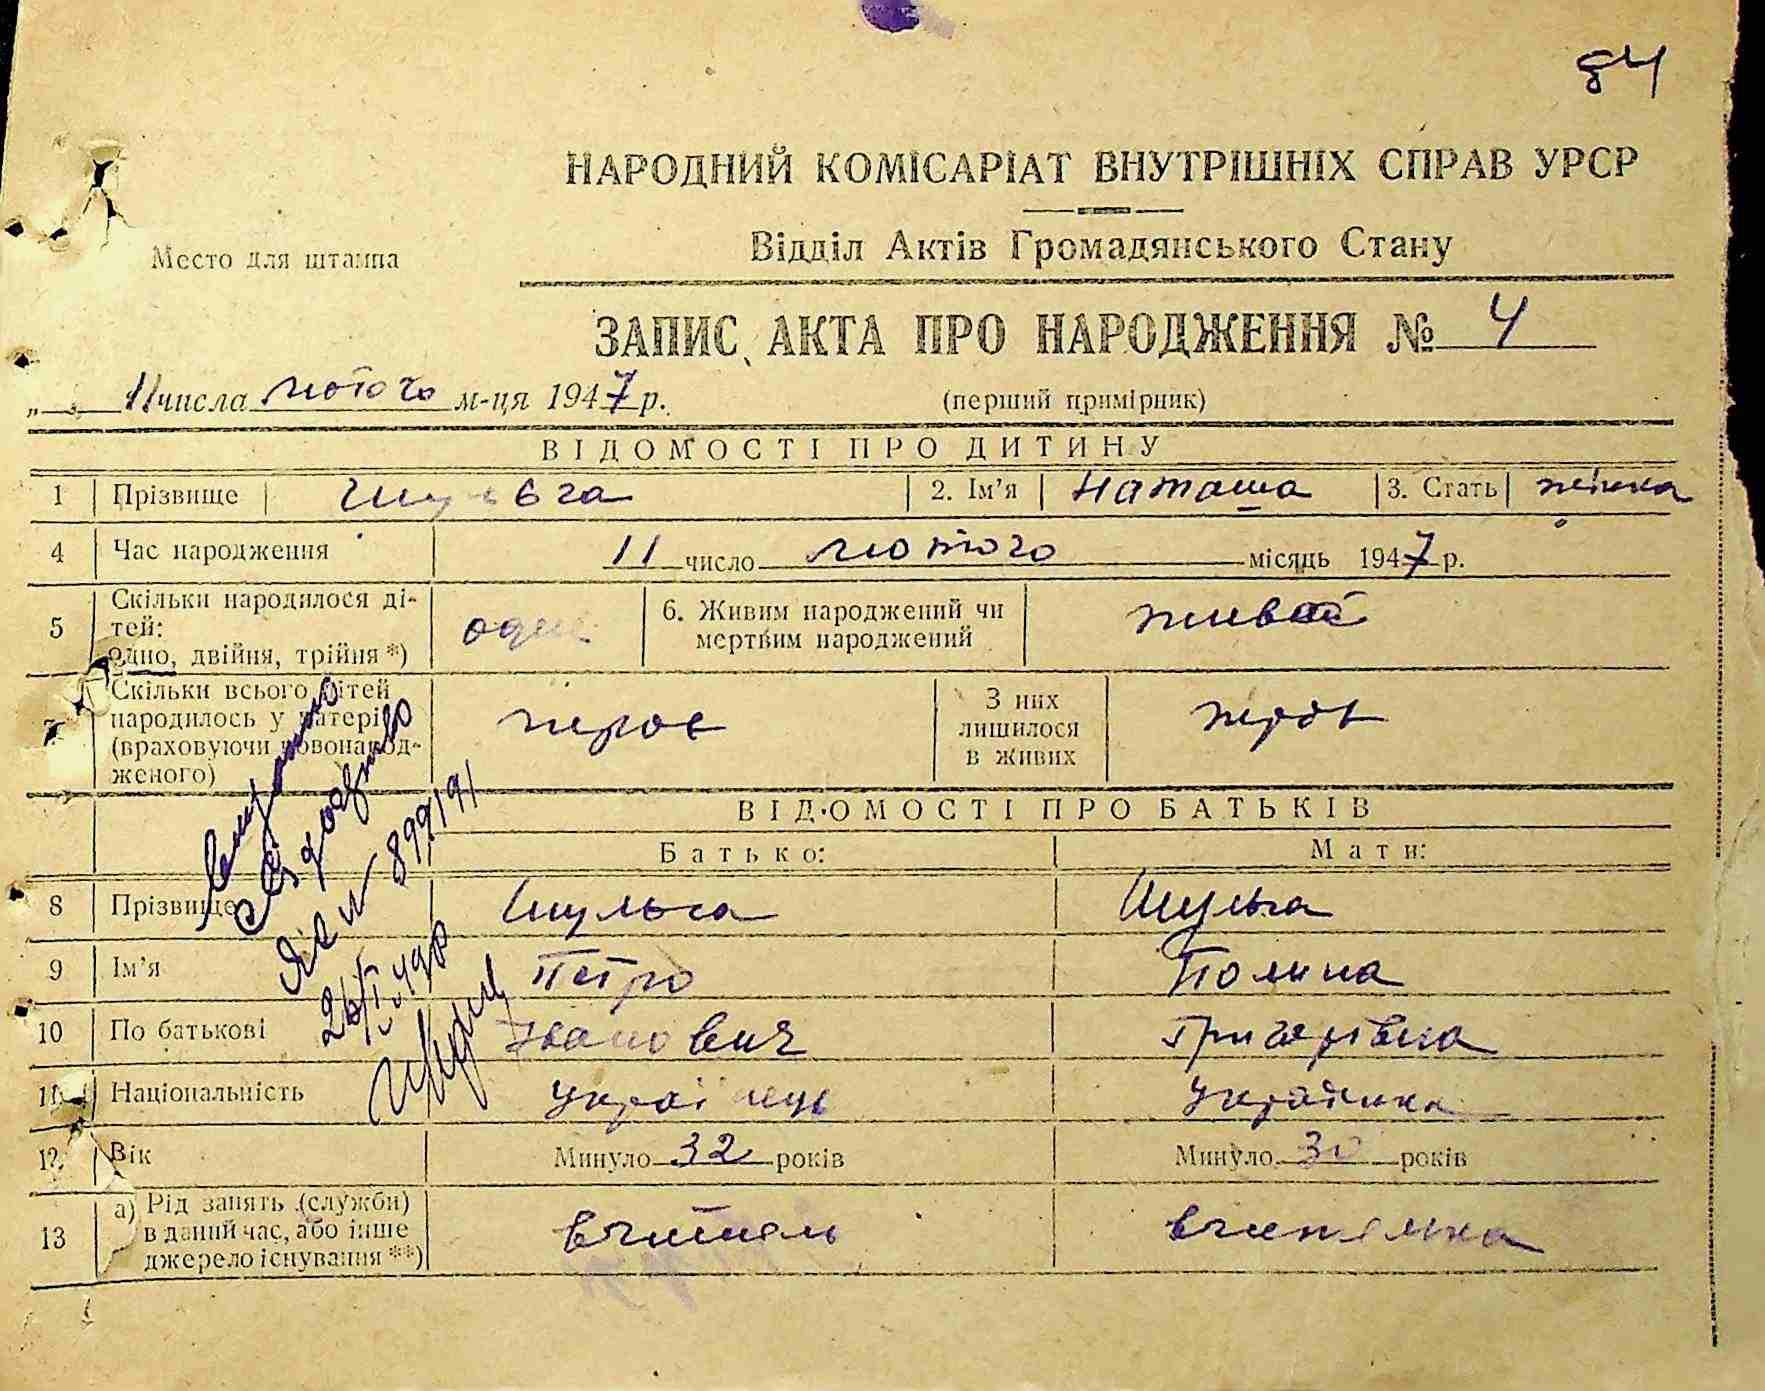 84
НАРОДНИЙ КОМІСАРІАТ ВНУТРІШНІХ СПРАВ УРСР
Место для штампа
Відділ Актів Громадянського Стану
ЗАПИС АКТА ПРО НАРОДЖЕННЯ № 4
„ 11 числа лютого м-ця 1947 р. (перший примірник)
ВІДОМОСТІ ПРО ДИТИНУ
1 Прізвище Шульга 2. Ім'я Наташа 3. Стать жінка
4 Час народження 11 число лютого місяць 1947 р.
5 Скільки народилося ді-
тей:
одно, двійня, трійня *)
одне
6. Живим народжений чи
мертвим народжений
живой
7 Скільки всього дітей
народилось у матері
(враховуючи новонарод-
женого)
перве
З них
лишилося
в живих
перве
ВІДОМОСТІ ПРО БАТЬКІВ
Батько: Мати:
8 Прізвище Шульга Шульга
9 Ім'я Петро Полина
10 По батькові Іванович Григорівна
11 Національність українець українка
12 Вік Минуло 32 років Минуло 30 років
13 а) Рід занять (служби)
в даний час, або інше
джерело існування **)
вчитель вчителька
№ 899191
26/I 49р